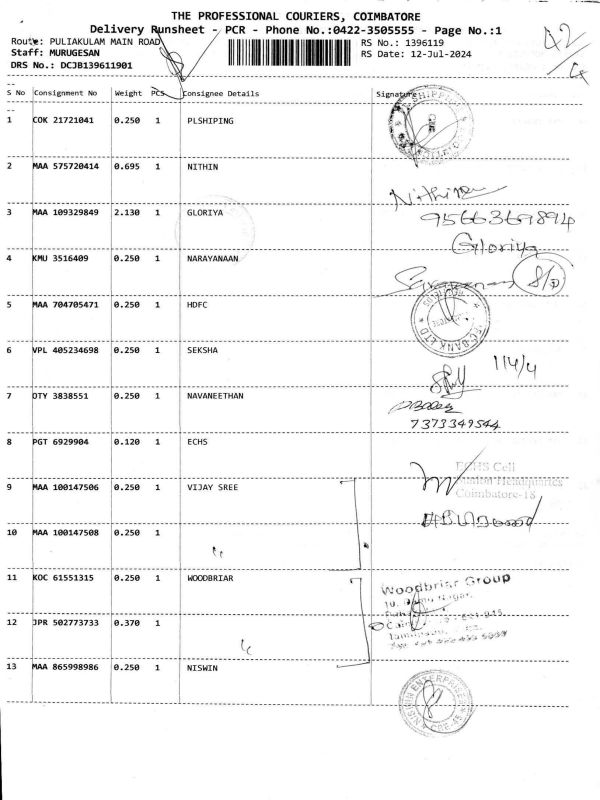 THE PROFESSIONAL COURIERS, COIMBATORE
Delivery Runsheet - PCR - Phone No.:0422-3505555 - Page No.:1
Route: PULIAKULAM MAIN ROAD
Staff: MURUGESAN
DRS No.: DCJB139611901
RS No.: 1396119
RS Date: 12-Jul-2024
42/4
S No Consignment No Weight PCS Consignee Details Signature
1 COK 21721041 0.250 1 PLSHIPING
2 MAA 575720414 0.695 1 NITHIN
Nithin
3 MAA 109329849 2.130 1 GLORIYA
9566369894
Gloriya
4 KMU 3516409 0.250 1 NARAYANAAN
S/o
5 MAA 704705471 0.250 1 HDFC
BANK LTD
6 VPL 405234698 0.250 1 SEKSHA
114/4
7 OTY 3838551 0.250 1 NAVANEETHAN
7373349544
8 PGT 6929904 0.120 1 ECHS
ECHS Cell
Station Headquarters
Coimbatore-18
9 MAA 100147506 0.250 1 VIJAY SREE
10 MAA 100147508 0.250 1
11 KOC 61551315 0.250 1 WOODBRIAR
Woodbriar Group
12 JPR 502773733 0.370 1
13 MAA 865998986 0.250 1 NISWIN
NISWIN ENTERPRISES
CBE-45